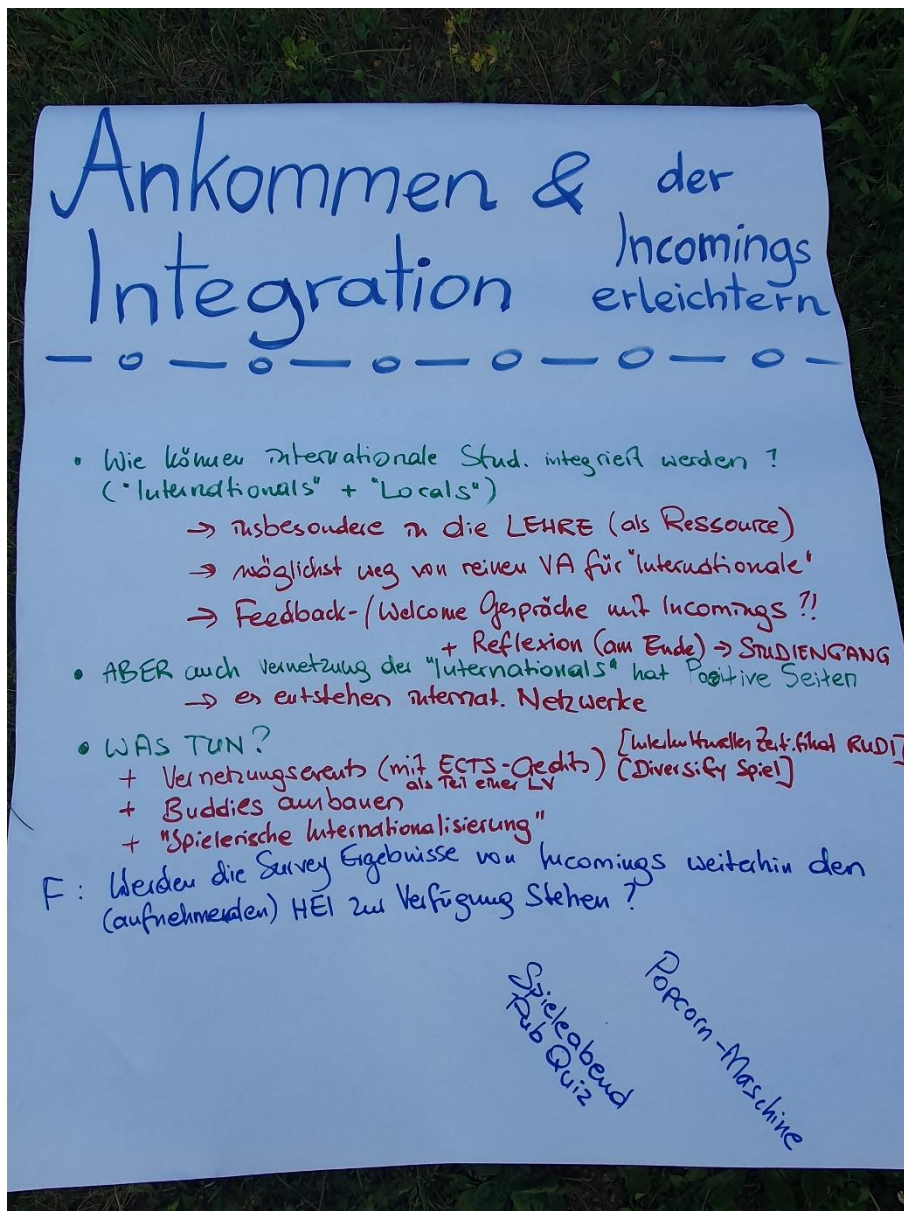 Ankommen & der
Integration Incomings
erleichtern
• Wie können internationale Stud. integriert werden ?
("Internationals" + "Locals")
→ insbesondere in die LEHRE (als Ressource)
→ möglichst weg von reinen VA für "Internationale"
→ Feedback-/Welcome Gespräche mit Incomings ?!
+ Reflexion (am Ende) → STUDIENGANG
• ABER auch Vernetzung der "Internationals" hat Positive Seiten
→ es entstehen internat. Netzwerke
• WAS TUN?
[Interkulturelles Zertifikat RUDI]
+ Vernetzungsevents (mit ECTS-Credits) [Diversify Spiel]
als Teil einer LV
+ Buddies ausbauen
+ "Spielerische Internationalisierung"
F: Werden die Survey Ergebnisse von Incomings weiterhin den
(aufnehmenden) HEI zur Verfügung Stehen ?
Spieleabend
Pub Quiz
Popcorn-Maschine